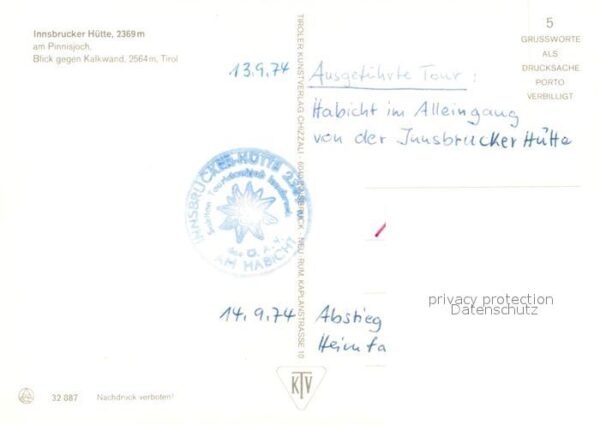 Innsbrucker Hütte, 2369m
am Pinnisjoch.
Blick gegen Kalkwand, 2564m, Tirol
5
GRUSSWORTE
ALS
DRUCKSACHE
PORTO
VERBILLIGT
13.9.74 Ausgeführte Tour:
Habicht im Alleingang
von der Innsbrucker Hütte
INNSBRUCKER-HÜTTE
Touristenklub Innsbruck
des Ö.A.V.
AM HABICHT
TIROLER KUNSTVERLAG CHIZZALI · INNSBRUCK · NEU-RUM, KAPLANSTRASSE 10
privacy protection
Datenschutz
14.9.74 Abstieg
Heimfa
KTV
32 887 Nachdruck verboten!